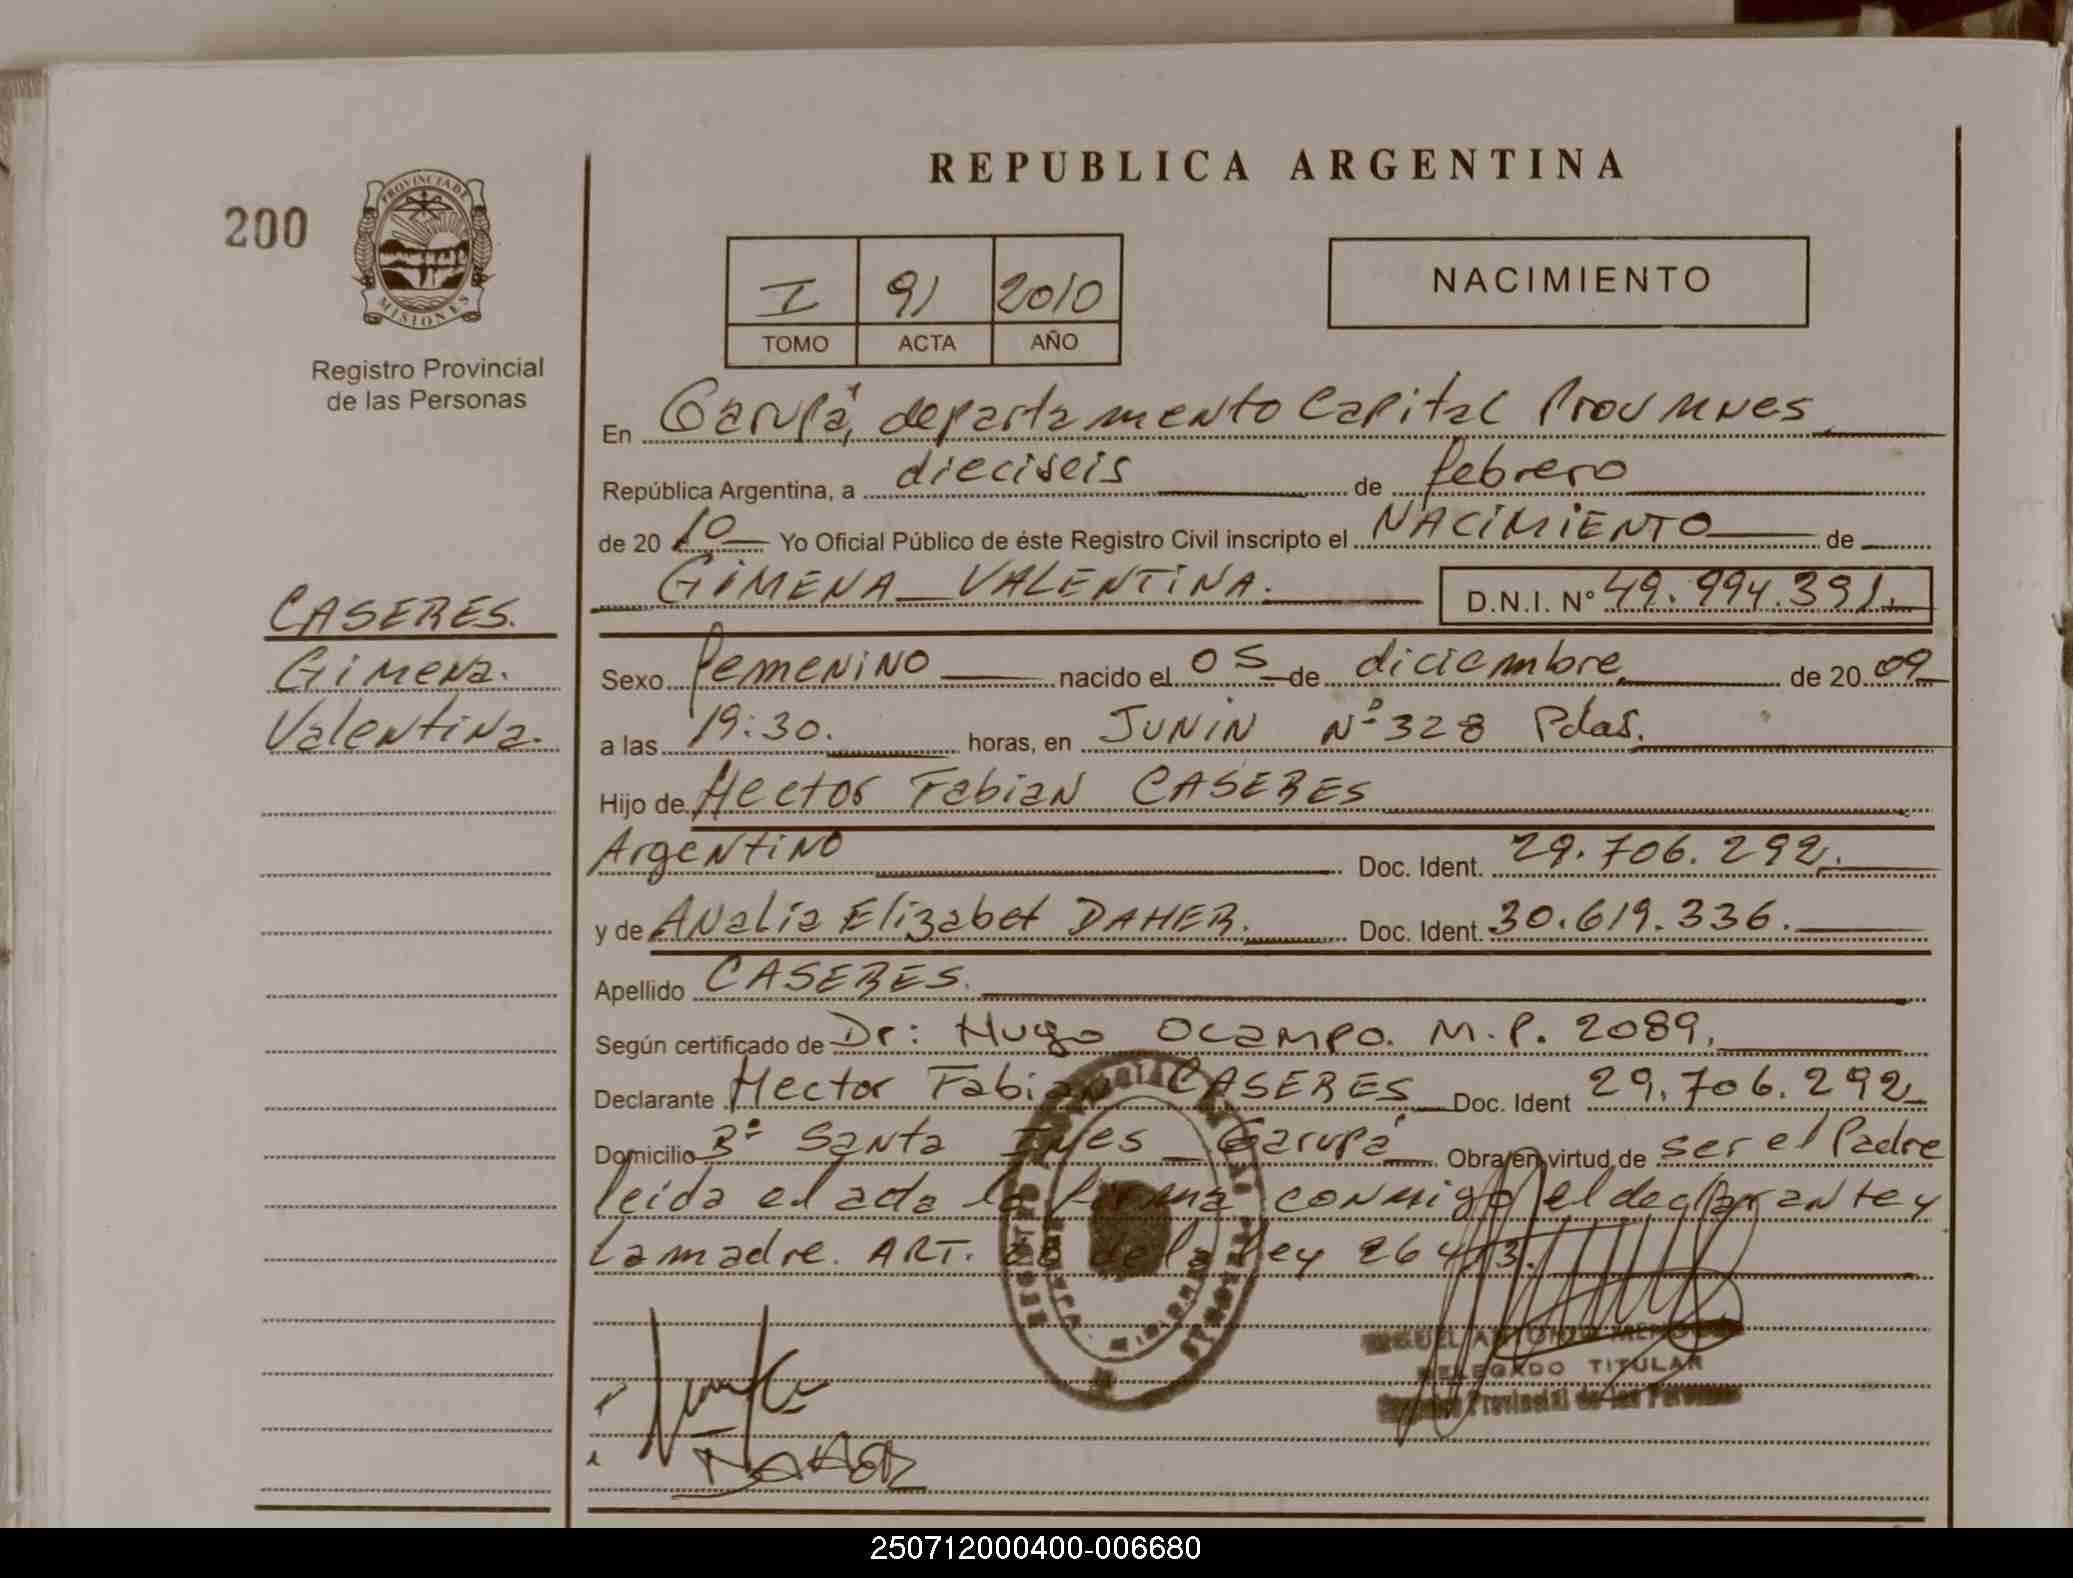 REPUBLICA ARGENTINA
200
PROVINCIA DE
MISIONES
Registro Provincial
de las Personas
I 91 2010
TOMO ACTA AÑO
NACIMIENTO
En Garupá, departamento Capital Prov Mnes
República Argentina, a dieciseis de febrero
de 2010 Yo Oficial Público de éste Registro Civil inscripto el NACIMIENTO de
GIMENA VALENTINA. D.N.I. Nº 49.994.391.
CASERES.
Gimena.
Valentina.
Sexo femenino nacido el 05 de diciembre de 2009
a las 19:30. horas, en JUNIN Nº 328 Pdas.
Hijo de Hector Fabian CASERES
Argentino Doc. Ident. 29.706.292.
y de Analia Elizabet DAHER. Doc. Ident. 30.619.336.
Apellido CASERES.
Según certificado de Dr: Hugo Ocampo. M.P. 2089.
Declarante Hector Fabian CASERES Doc. Ident 29.706.292
Domicilio Bº Santa Ines Garupá Obra en virtud de ser el Padre
leida el acta la firma conmigo el declarante y
la madre. ART. de la ley 26413.
ANTONIO
DELEGADO TITULAR
Provincial de las Personas
DAHER
250712000400-006680